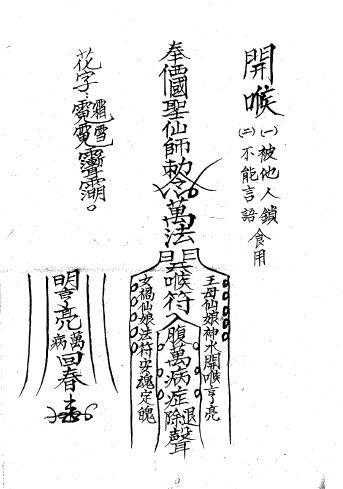 開喉
(一)被他人鎖食用
(二)不能言語
奉價國聖仙師勅令萬法開喉符入腹萬病症退除聲
王母仙娘神水開喉亨亮
女禍仙娘法符安魂定魄
花字：霜雪
明亮萬病回春